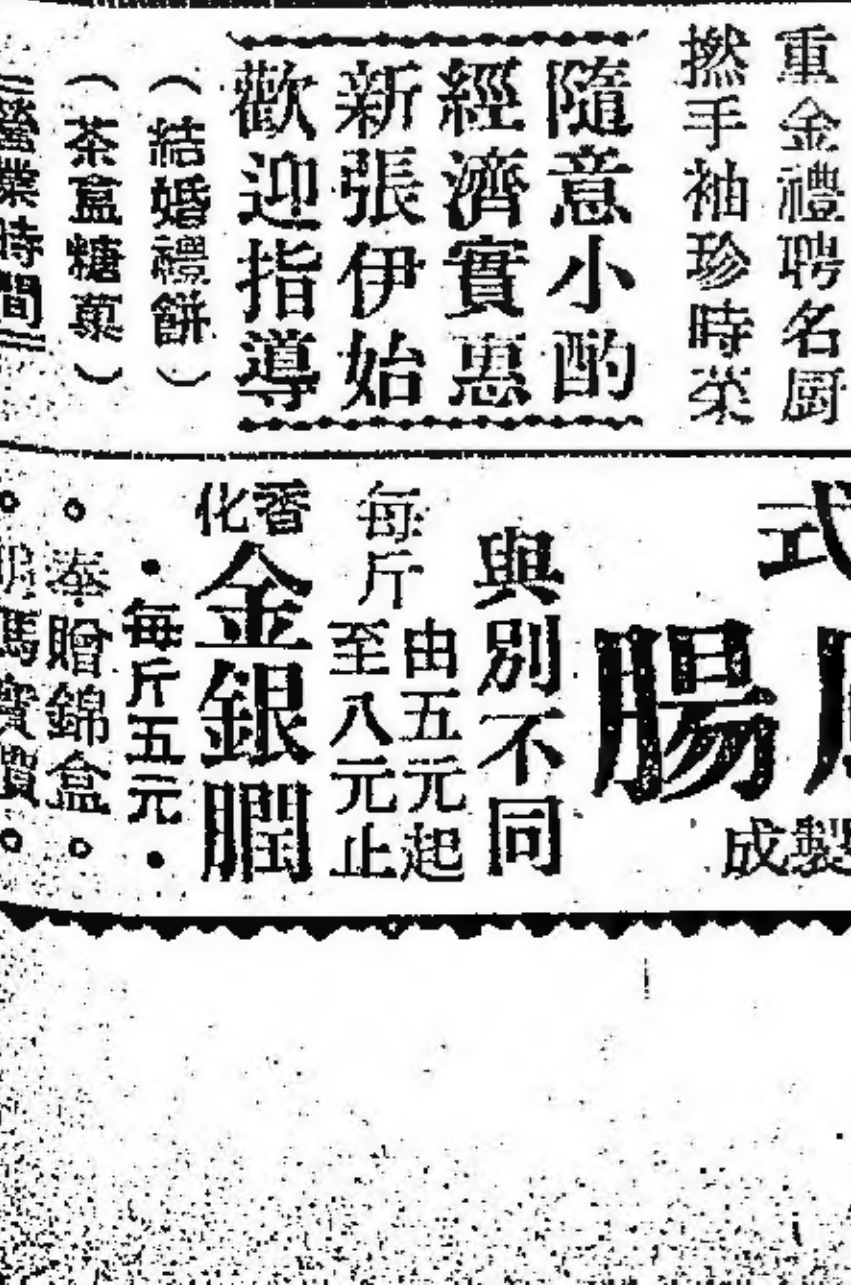 重金禮聘名厨
撚手袖珍時菜
隨意小酌
經濟實惠
新張伊始
歡迎指導
（結婚禮餅）
（茶盒糖菓）
營業時間
式
腸
製成
與別不同
每斤
由五元起
至八元止
香化
金銀膶
·每斤五元·
。奉贈錦盒。